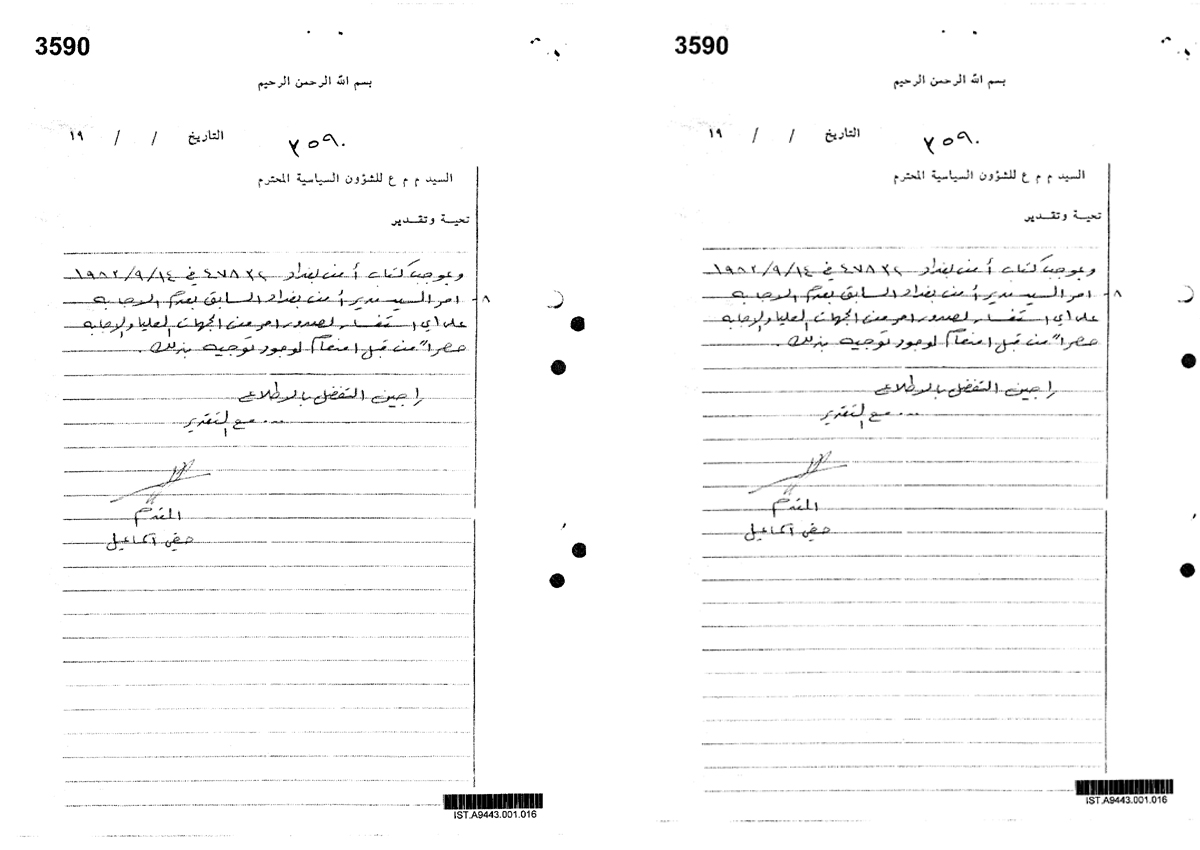 3590
بسم الله الرحمن الرحيم
٣٥٩٠ التاريخ / / ١٩
السيد م م ع للشؤون السياسية المحترم
تحية وتقدير
وبموجب كتاب أمن بغداد ٤٧٨٣٢ في ١٩٨٢/٩/١٤
٨- امر السيد مدير أمن بغداد السابق بعدم الاجابه
على اي استفسار لصدور امر من الجهات العليا والاجابه
حصرا" من قبل امنعام لوجود توجيه بذلك.
راجين التفضل بالاطلاع
... مع التقدير
المقدم
اسماعيل
IST.A9443.001.016
3590
بسم الله الرحمن الرحيم
٣٥٩٠ التاريخ / / ١٩
السيد م م ع للشؤون السياسية المحترم
تحية وتقدير
وبموجب كتاب أمن بغداد ٤٧٨٣٢ في ١٩٨٢/٩/١٤
٨- امر السيد مدير أمن بغداد السابق بعدم الاجابه
على اي استفسار لصدور امر من الجهات العليا والاجابه
حصرا" من قبل امنعام لوجود توجيه بذلك.
راجين التفضل بالاطلاع
... مع التقدير
المقدم
اسماعيل
IST.A9443.001.016